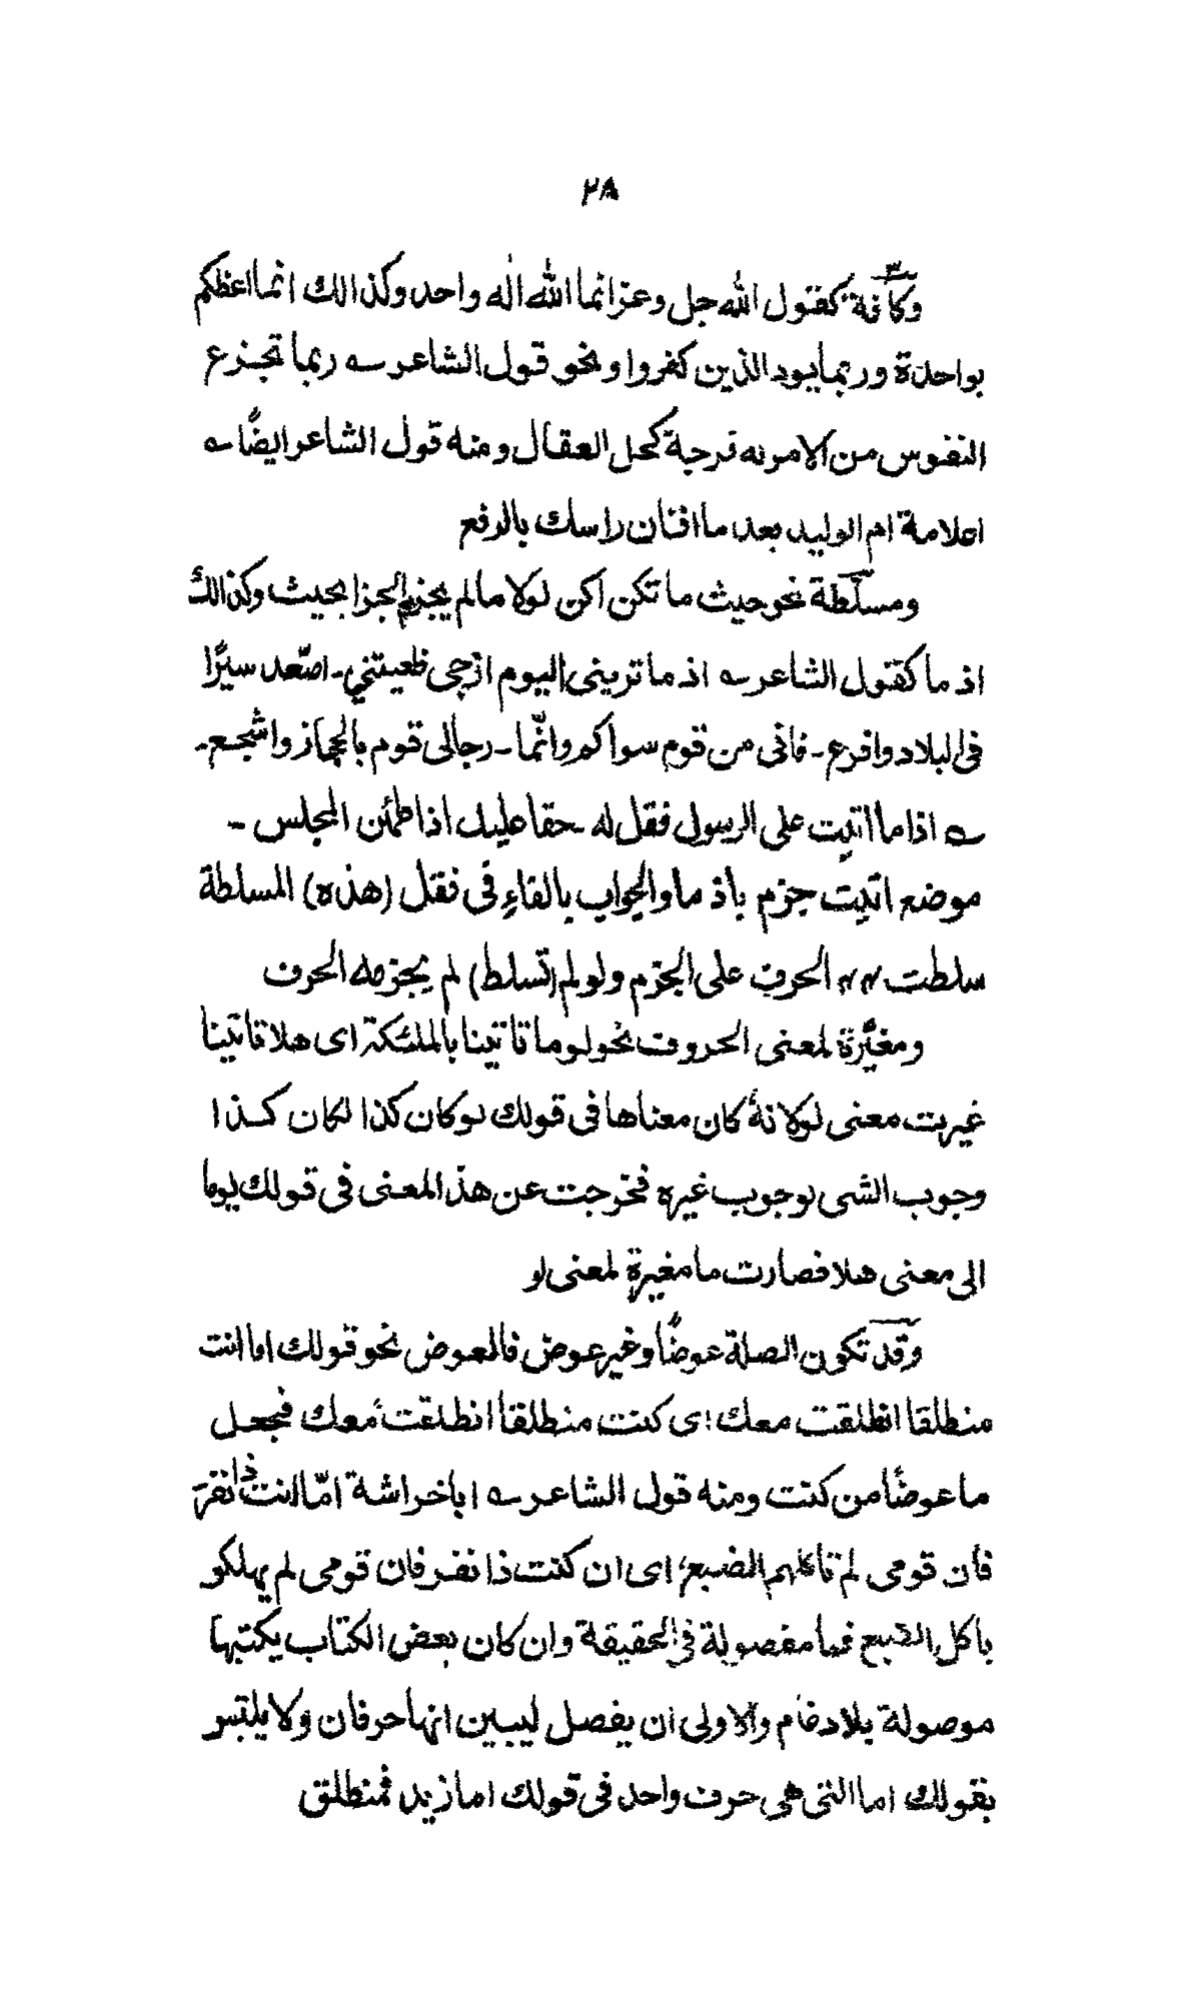 ٢٨
وكافّة كقول الله جل وعز انما الله اله واحد وكذالك انما اعظكم
بواحدة وربما يود الذين كفروا ونحو قول الشاعر ؎ ربما تجزع
النفوس من الامر له فرجة كحل العقال ومنه قول الشاعر ايضًا ؎
اعلامة ام الوليد بعد ما افنان راسك بالرفع
ومسلّطة نحو حيث ما تكن اكن لولا ما لم يجزم الجزا بحيث وكذالك
اذ ما كقول الشاعر ؎ اذ ما ترينى اليوم ازجى ظعينتي - اصّعد سيرًا
فى البلاد وافرع - فانى من قوم سواكم وانّما - رجالى قوم بالحجاز واشجع -
؎ اذا ما اتيت على الرسول فقل له - حقا عليك اذا طمئن المجلس -
موضع اتيت جزم باذ ما والجواب بالفاءِ فى فقل (هذه) المسلطة
سلطت // الحرف على الجزم ولو لم (تسلط) لم يجزمه الحرف
ومغيّرة لمعنى الحروف نحو لو ما تاتينا بالملئكة اى هلا تاتينا
غيرت معنى لو لانهٗ كان معناها فى قولك لو كان كذا لكان كذا
وجوب الشى لوجوب غيره فخرجت عن هذ المعنى فى قولك لوما
الى معنى هلا فصارت ما مغيرة لمعنى لو
وقد تكون الصلة عوضًا وغير عوض فالعوض نحو قولك اما انت
منطلقا انطلقت معك اى كنت منطلقا انطلقت معك فجعل
ما عوضًا من كنت ومنه قول الشاعر ؎ ابا خراشة امّا انت ذا نفر
فان قومى لم تاكلهم الضبع اى ان كنت ذا نفر فان قومى لم يهلكو
باكل الضبع فما مفصولة فى الحقيقة وان كان بعض الكتاب يكتبها
موصولة بلادغام والاولى ان يفصل ليبين انها حرفان ولا يلتبس
بقولك اما التى هى حرف واحد فى قولك اما زيد فمنطلق